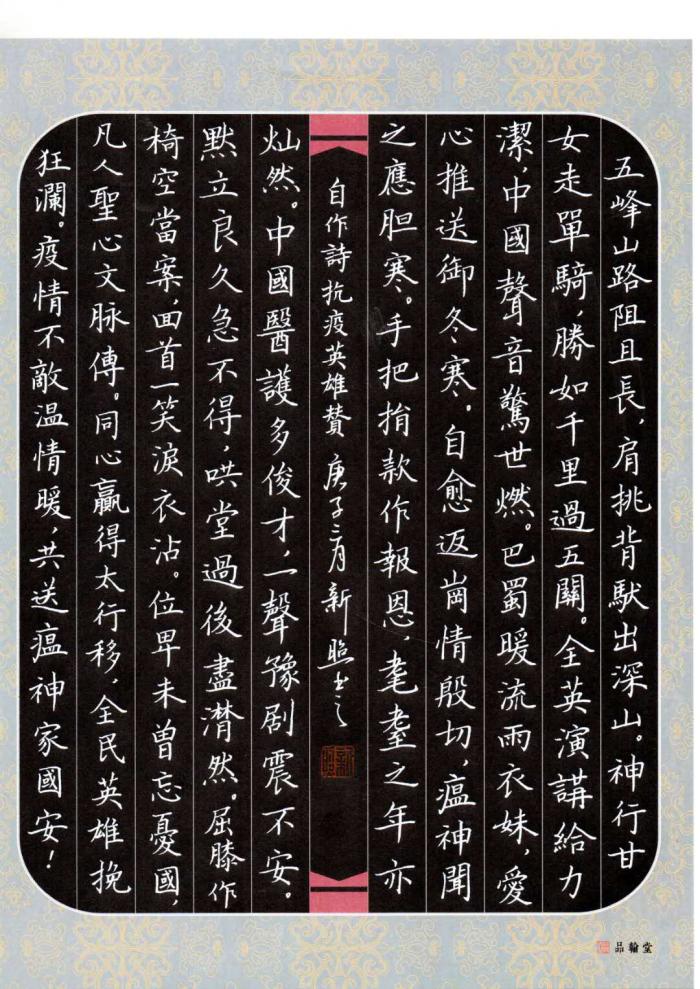 五峰山路阻且長，肩挑背馱出深山。神行甘
女走單騎，勝如千里過五關。全英演講給力
潔，中國聲音驚世燃。巴蜀暖流雨衣妹，愛
心推送御冬寒。自愈返崗情殷切，瘟神聞
之應胆寒。手把捐款作報恩，耄耋之年亦
自作詩抗疫英雄贊 庚子三月新照書之
灿然。中國醫護多俊才，一聲豫剧震不安。
黙立良久急不得，哄堂過後盡潸然。屈膝作
椅空當案，回首一笑淚衣沾。位卑未曾忘憂國，
凡人聖心文脉傳。同心贏得太行移，全民英雄挽
狂瀾。疫情不敵温情暖，共送瘟神家國安！
品翰堂